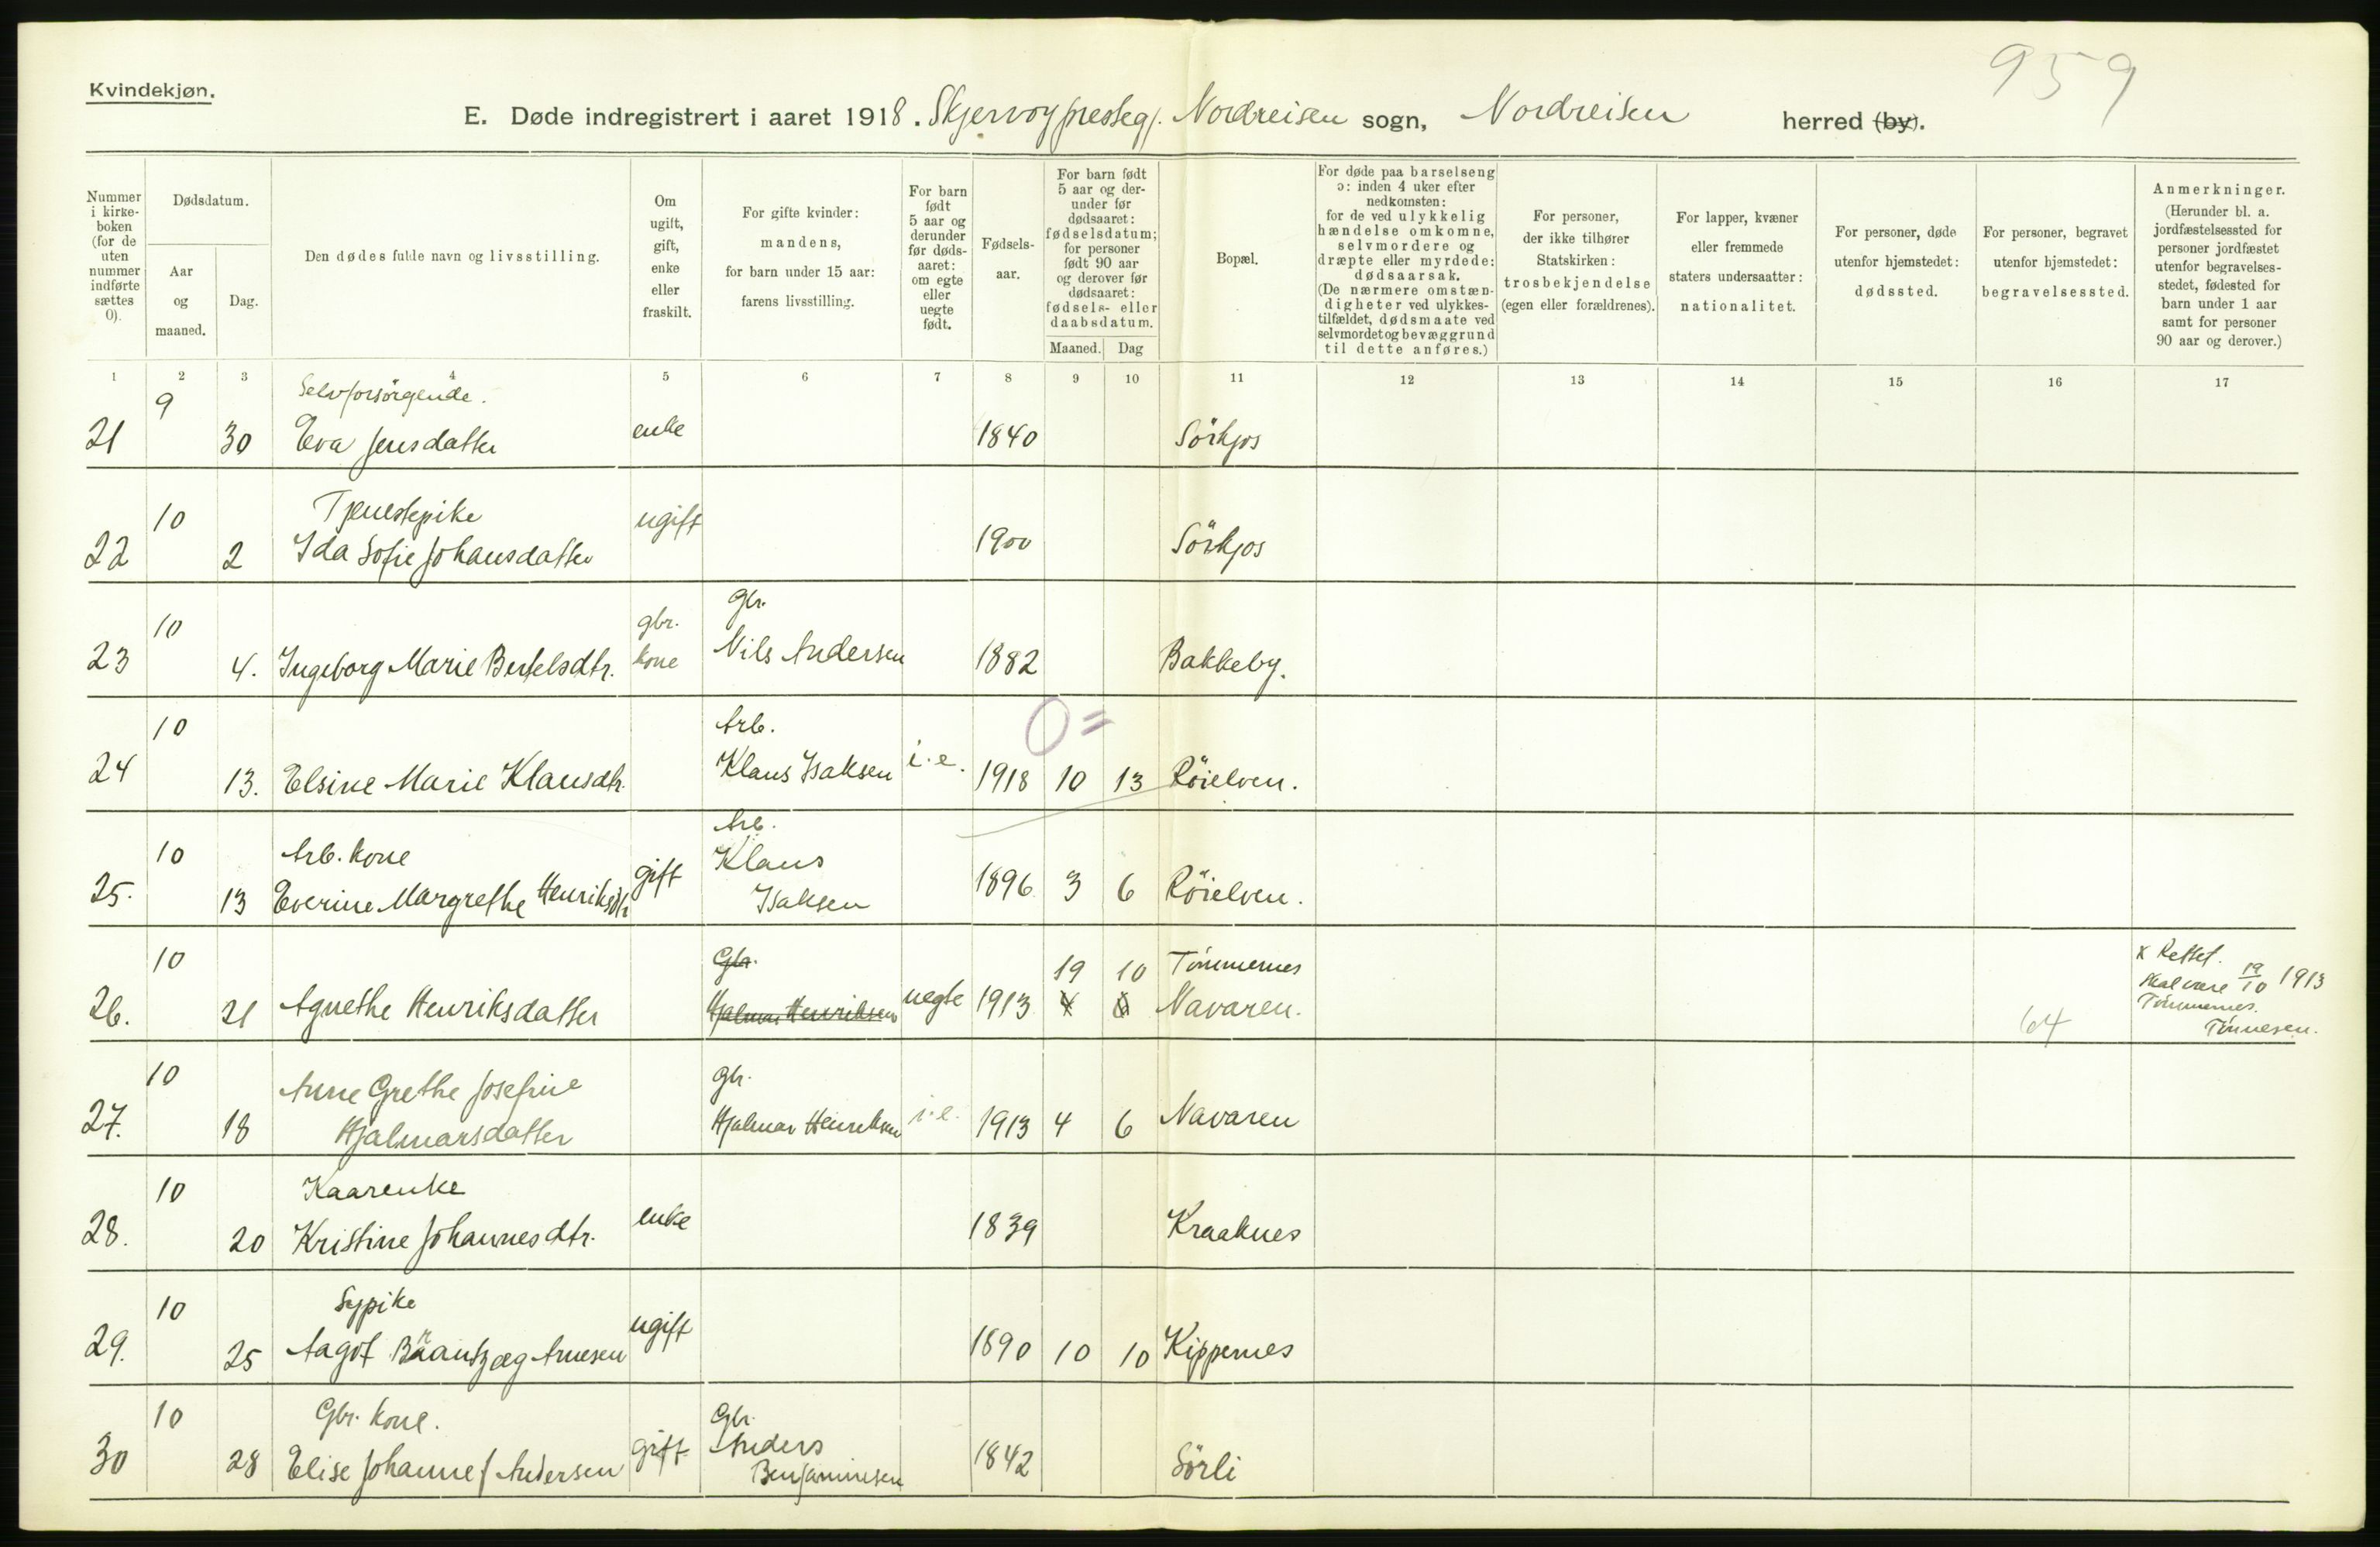 959
Kvindekjøn.
E. Døde indregistrert i aaret 1918. Skjervøy prestegj. Nordreisen sogn, Nordreisen herred (by).
Nummer i kirkeboken (for de uten nummer indførte sættes 0).
Dødsdatum.
Aar og maaned.
Dag.
Den dødes fulde navn og livsstilling.
Om ugift, gift, enke eller fraskilt.
For gifte kvinder: mandens, for barn under 15 aar: farens livsstilling.
For barn født 5 aar og derunder før dødsaaret: om egte eller uegte født.
Fødselsaar.
For barn født 5 aar og derunder før dødsaaret: fødselsdatum; for personer født 90 aar og derover før dødsaaret: fødsels- eller daabsdatum.
Maaned. Dag
Bopæl.
For døde paa barselseng ɔ: inden 4 uker efter nedkomsten: for de ved ulykkelig hændelse omkomne, selvmordere og dræpte eller myrdede: dødsaarsak. (De nærmere omstændigheter ved ulykkestilfældet, dødsmaate ved selvmordet og bevæggrund til dette anføres.)
For personer, der ikke tilhører Statskirken: trosbekjendelse (egen eller forældrenes).
For lapper, kvæner eller fremmede staters undersaatter: nationalitet.
For personer, døde utenfor hjemstedet: dødssted.
For personer, begravet utenfor hjemstedet: begravelsessted.
Anmerkninger. (Herunder bl. a. jordfæstelsessted for personer jordfæstet utenfor begravelsesstedet, fødested for barn under 1 aar samt for personer 90 aar og derover.)
1 2 3 4 5 6 7 8 9 10 11 12 13 14 15 16 17
9 Selvforsörgende.
21 30 Eva Jensdatter enke 1840 Sörkjos
10 Tjenestepike ugift
22 2 Ida Sofie Johansdatter 1900 Sörkjos
10 gbr. Gbr.
23 4. Ingeborg Marie Bertelsdtr. kone Nils Andersen 1882 Bakkeby.
10 Arb. 0=
24 13. Elsine Marie Klausdtr. Klaus Isaksen i.e. 1918 10 13 Röielven.
10 Arb. kone Arb. Klaus
25. 13 Everine Margrethe Henriksdtr gift Isaksen 1896 3 6 Röielven.
10 Gbr. 19 10 Tömmernes x Rettet.
26. 21 Agnethe Henriksdatter Hjalmar Henriksen uegte 1913 4 6 Navaren. 64 skal være 19/10 1913
Tömmernes.
Tönnesen.
10 Anne Grethe Josefine Gbr.
27. 18 Hjalmarsdatter Hjalmar Henriksen i.e. 1913 4 6 Navaren
10 Kaarenke
28. 20 Kristine Johannesdtr. enke 1839 Kraaknes
10 Sypike
29. 25 Aagot Arnesen ugift 1890 10 10 Kippernes
10 Gbr. kone. Gbr. Anders
30 28 Elise Johanne J Andersen gift Benjaminsen 1842 Sörli